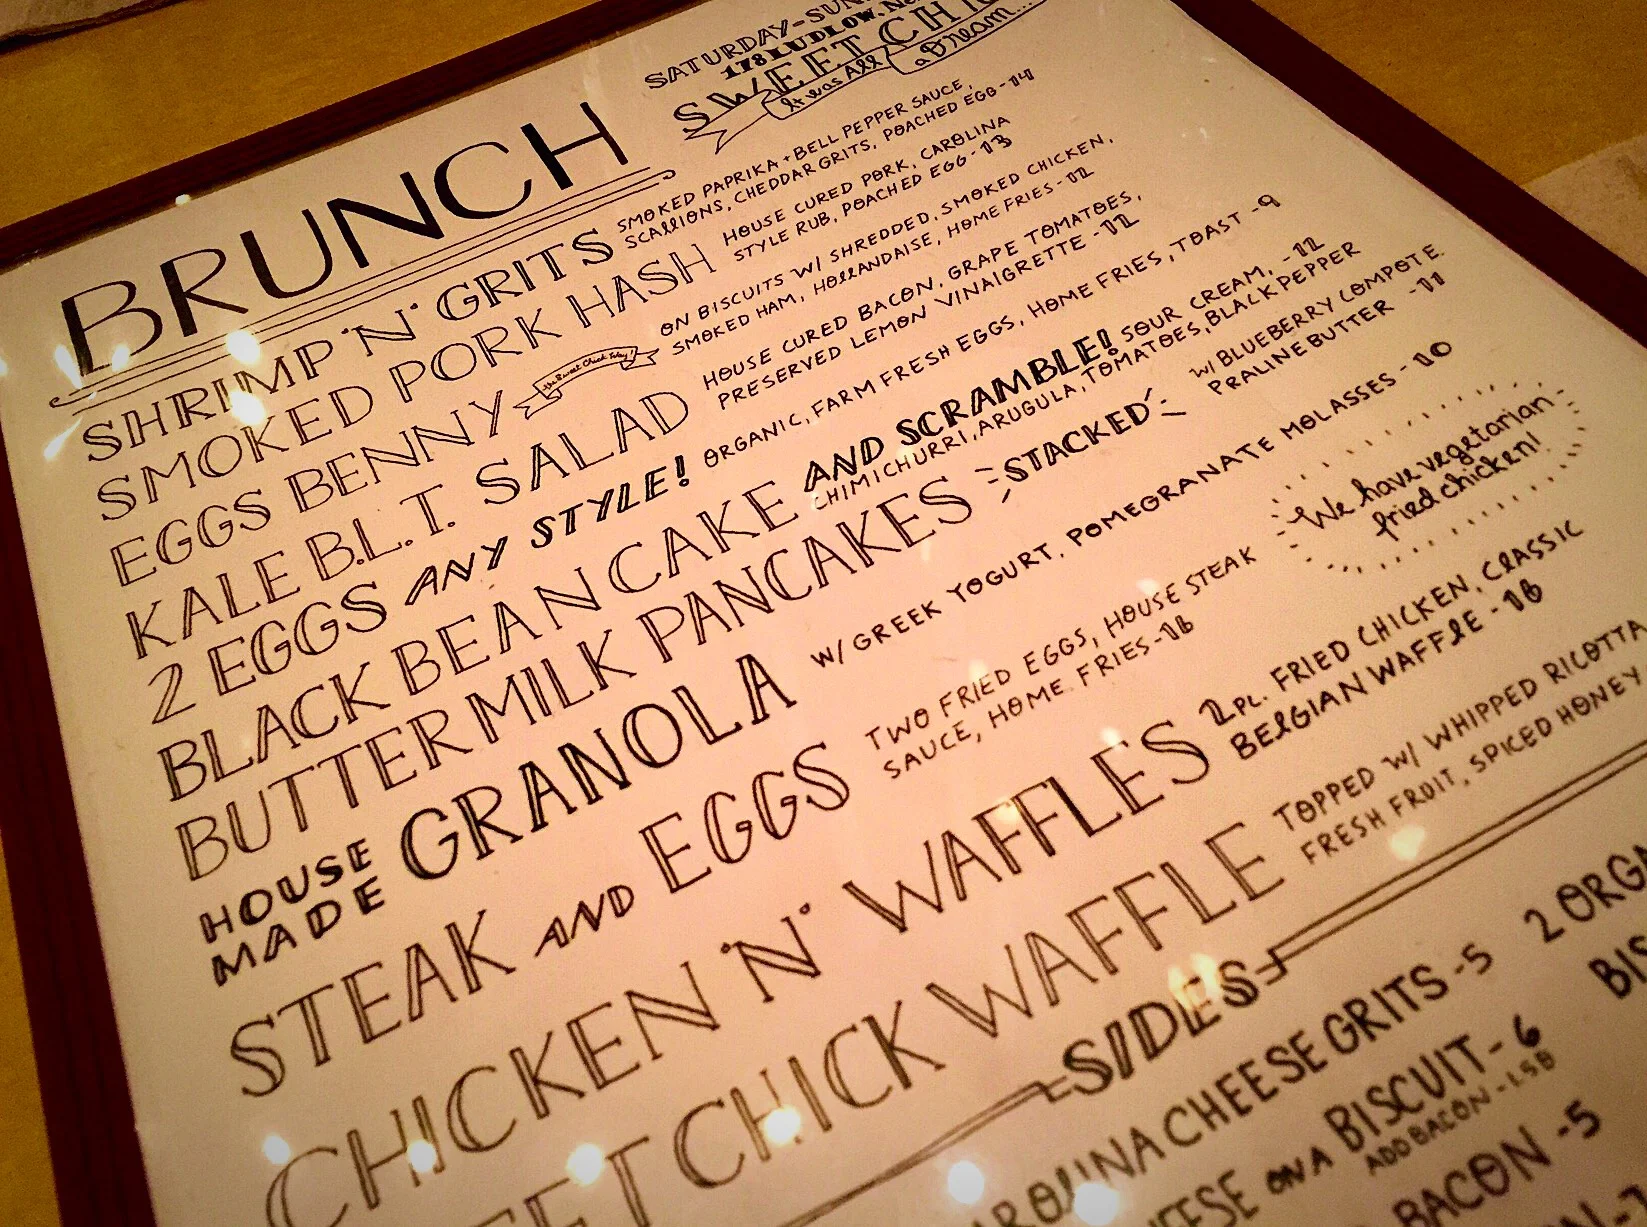 SATURDAY-SUN
178 LUDLOW.
SWEET CHI
It was All a Dream...
BRUNCH
SHRIMP 'N' GRITS
SMOKED PAPRIKA + BELL PEPPER SAUCE,
SCALLIONS, CHEDDAR GRITS, POACHED EGG - 14
SMOKED PORK HASH
HOUSE CURED PORK, CAROLINA
STYLE RUB, POACHED EGG - 13
EGGS BENNY
the Sweet Chick Way!
ON BISCUITS W/ SHREDDED, SMOKED CHICKEN,
SMOKED HAM, HOLLANDAISE, HOME FRIES - 12
KALE B.L.T. SALAD
HOUSE CURED BACON, GRAPE TOMATOES,
PRESERVED LEMON VINAIGRETTE - 12
2 EGGS ANY STYLE!
ORGANIC, FARM FRESH EGGS, HOME FRIES, TOAST - 9
BLACK BEAN CAKE AND SCRAMBLE!
SOUR CREAM, - 12
CHIMICHURRI, ARUGULA, TOMATOES, BLACK PEPPER
BUTTERMILK PANCAKES STACKED
W/ BLUEBERRY COMPOTE.
PRALINE BUTTER - 11
HOUSE MADE GRANOLA
W/ GREEK YOGURT, POMEGRANATE MOLASSES - 10
We have vegetarian -
fried chicken!
STEAK AND EGGS
TWO FRIED EGGS, HOUSE STEAK
SAUCE, HOME FRIES - 16
CHICKEN 'N' WAFFLES
2 PC. FRIED CHICKEN, CLASSIC
BELGIAN WAFFLE - 16
EET CHICK WAFFLE
TOPPED W/ WHIPPED RICOTTA
FRESH FRUIT, SPICED HONEY
SIDES
ROLINA CHEESE GRITS - 5
2 ORGA
EESE ON A BISCUIT - 6
BIS
ADD BACON - 1.50
BACON - 5